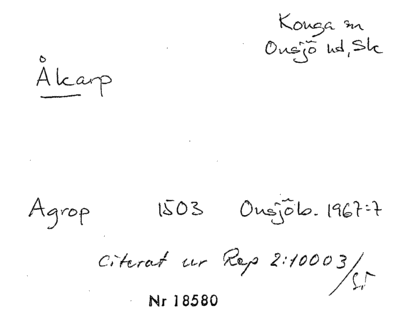 Konga sn
Onsjö hd, Sk
Åkarp
Agrop 1503 Onsjöb. 1967:7
Citerat ur Rep 2:10003/
Nr 18580